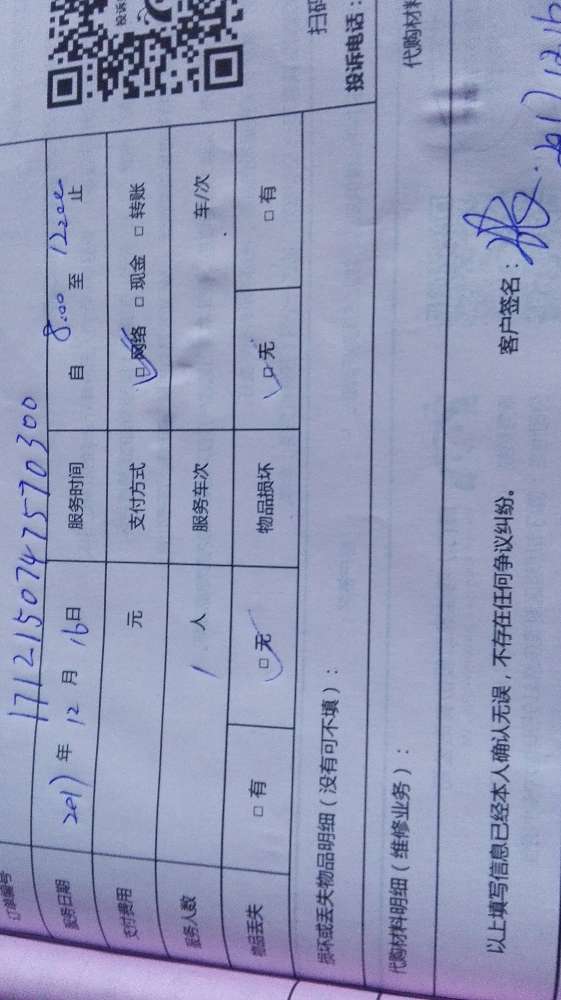 订单编号 1712150747570300
服务日期 2017年 12月 16日 服务时间 自 8:00 至 12:00 止
支付费用 元 支付方式 □网络 □现金 □转账
服务人数 1 人 服务车次 车/次
物品丢失 □有 □无 物品损坏 □无 □有
损坏或丢失物品明细（没有可不填）：
代购材料明细（维修业务）： 代购材料
以上填写信息已经本人确认无误，不存在任何争议纠纷。 客户签名：
扫码
投诉电话：
投诉